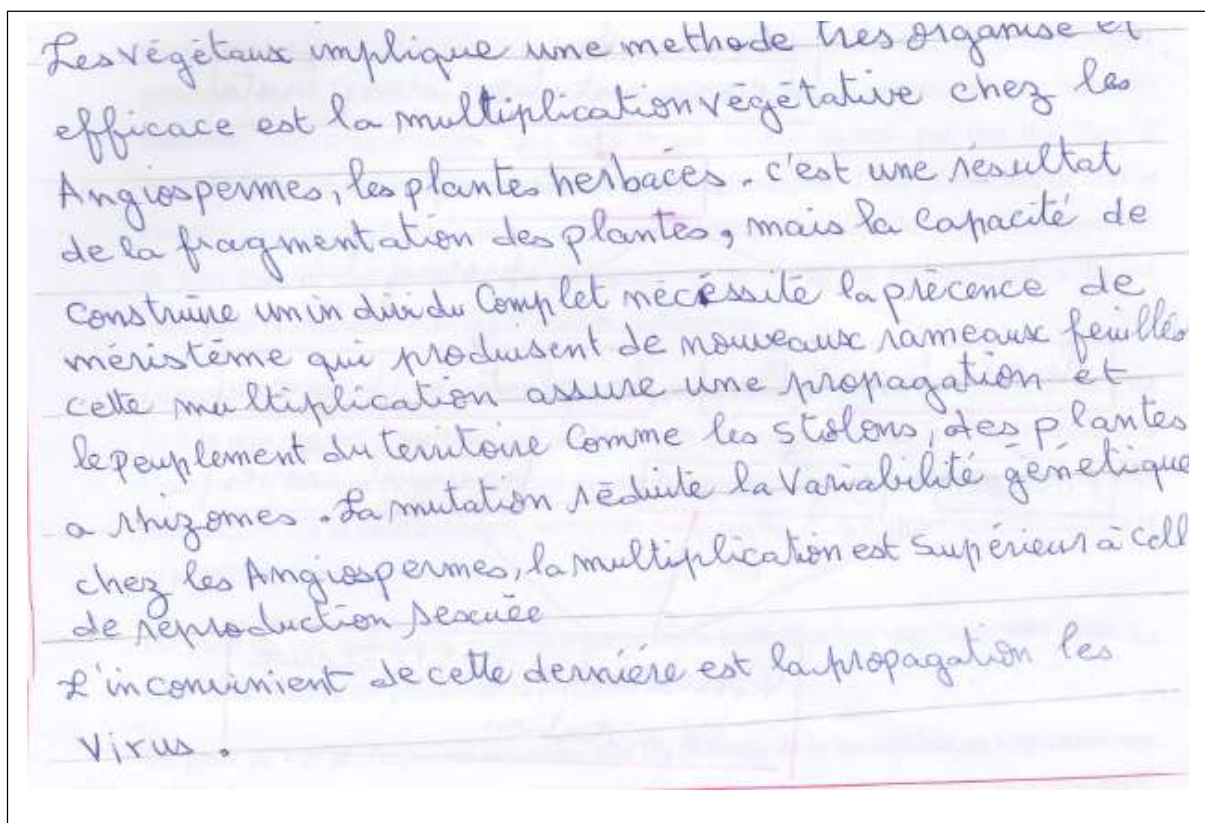 Les végétaux implique une methode tres organise et
efficace est la multiplication végétative chez les
Angiospermes, les plantes herbacés. c'est une résultat
de la fragmentation des plantes, mais la capacité de
construire un in dividu Complet nécéssité la précence de
méristéme qui produisent de nouveaux rameaux feuillés
cette multiplication assure une propagation et
le peuplement du territoire Comme les stolons, des plantes
a rhizomes. La mutation réduite la variabilité génétique
chez les Angiospermes, la multiplication est Supérieur à cell
de reproduction sexuée
L'inconvinient de cette derniére est la propagation les
virus.